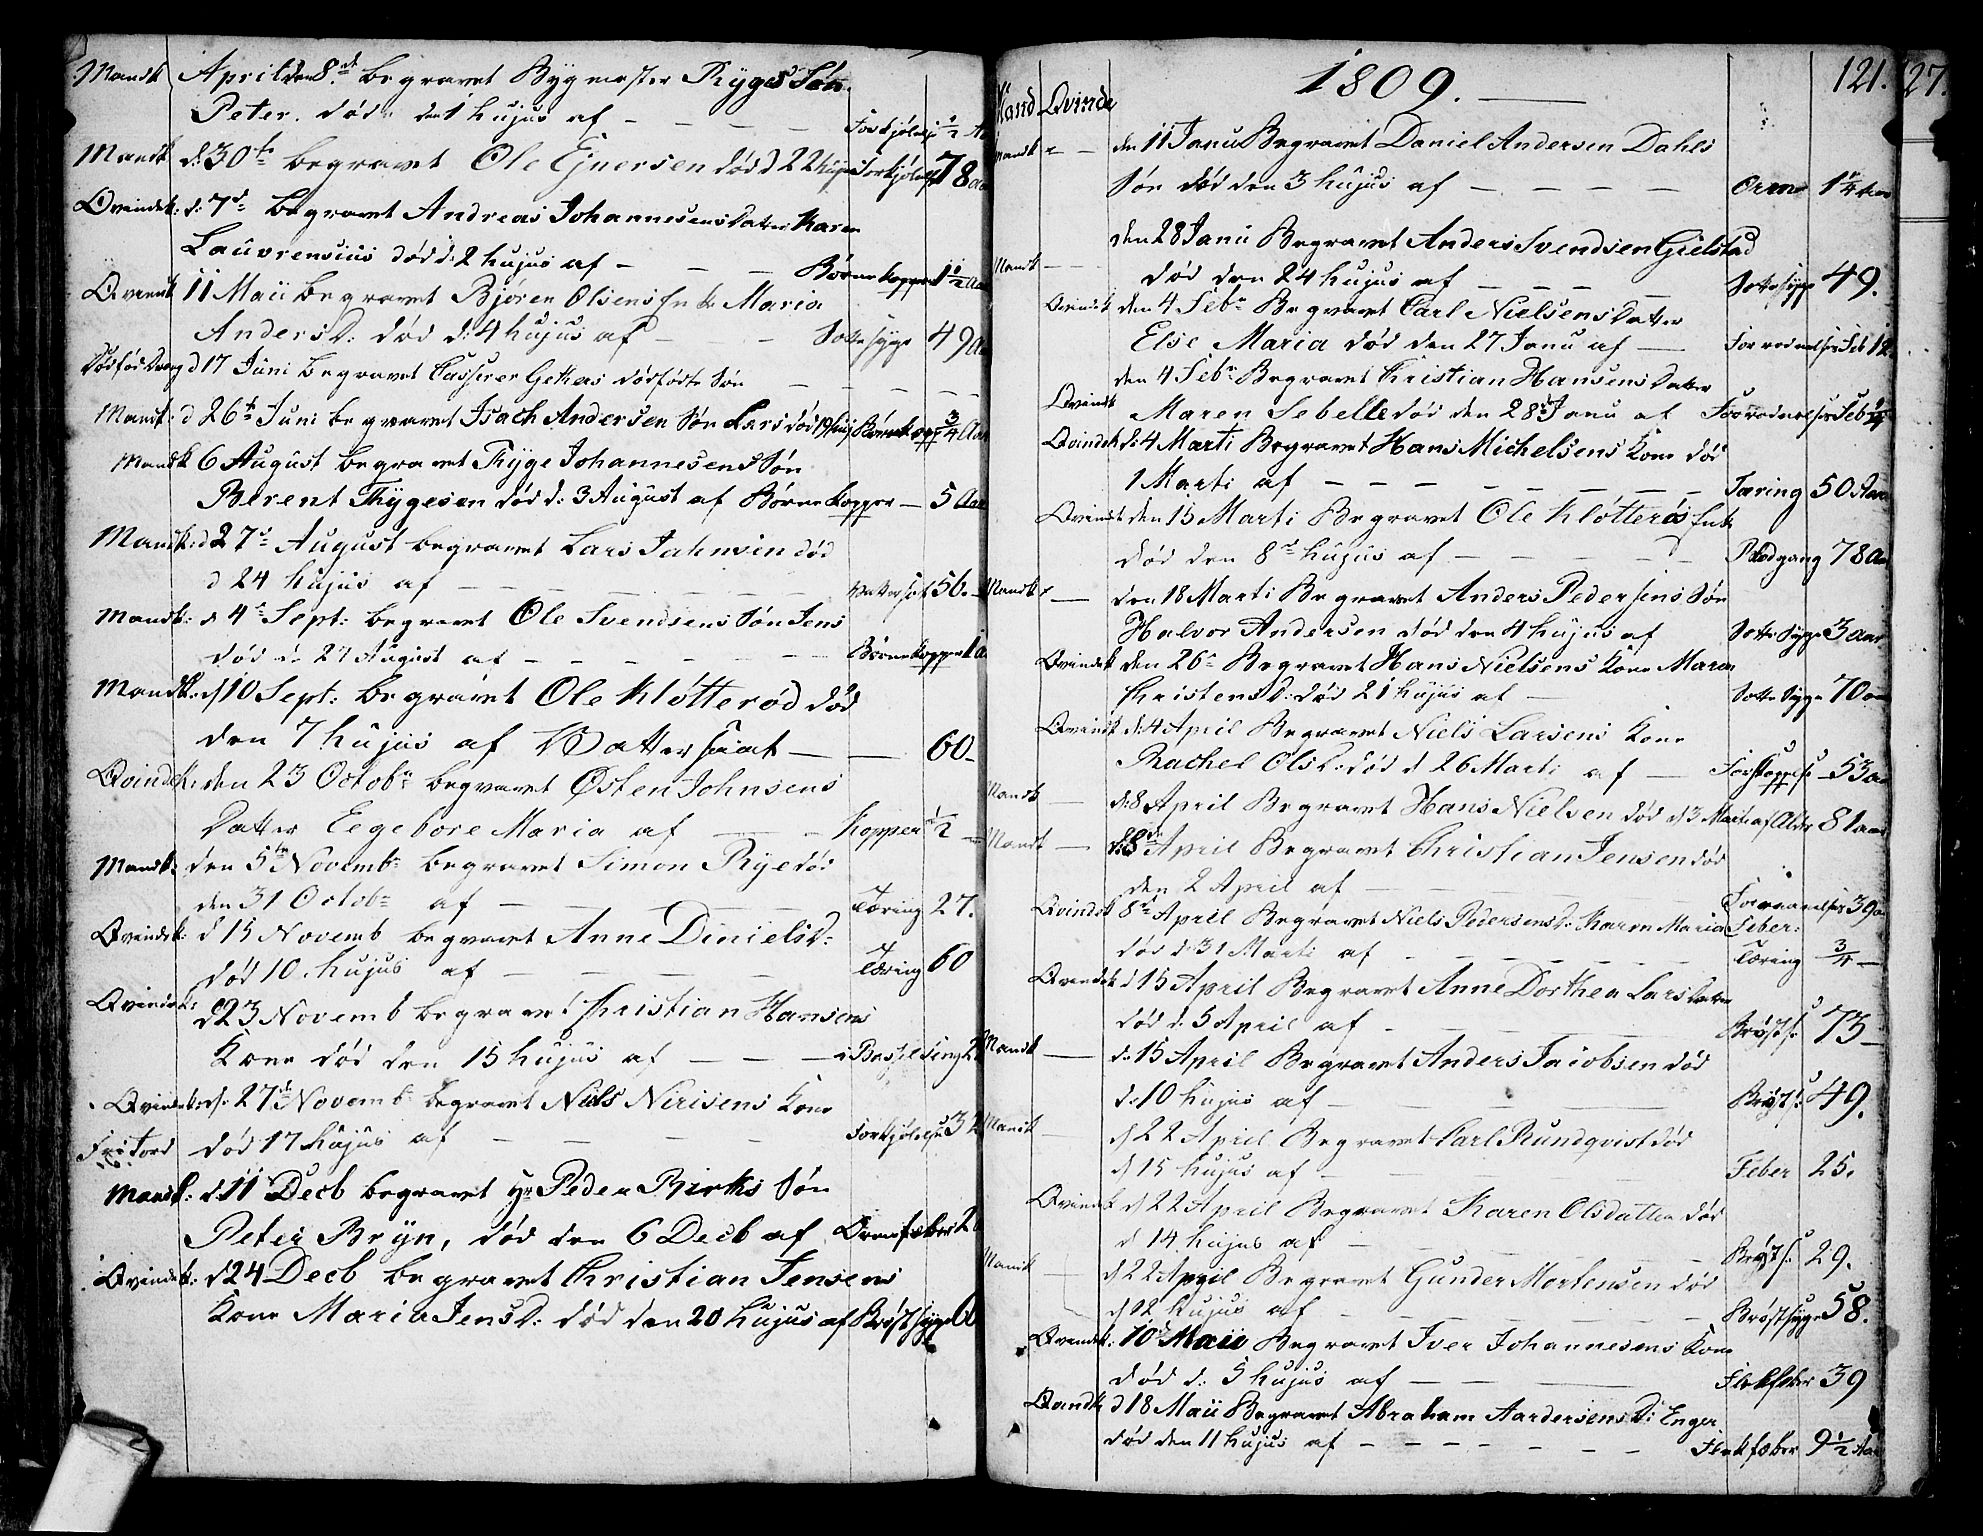 Mandk April den 8de begravet Bygmester Thyges Søn
Peter. død den 1 hujus af — — — Forkjølelse 1/2 Aar
Mandk d: 30te begravet Ole Ejnersen død d 22 hujus Forkjølelse 78 aar
Qvindek: d: 7de begravet Andreas Johannesens Datter Karen
Lauvrensius død d: 2 hujus af — — — Børnekopper 1 1/2 Aar
Qvindk 11 Maii begravet Bjøren Olsens Enke Maria
Anders D: død d: 4 hujus af — — Sottesyge 49 Aar
Dødfød Dreng d 17 Juni begravet Casserer Gethers dødfødte Søn — — — —
Mandk: d 26te Juni begravet Isach Andersen Søn Lars død 19 huj Børnekopp 3/4 Aar
Mandk 6 August begravet Thyge Johannesens Søn
Berent Thygesen død d: 3 August af Børnekopper — 5 Aar
Mandk: d 27de August begravet Lars Jahnsen død
d 24 hujus af — — — Vattersot 56.
Mandk: d 4de Sept: begravet Ole Svendsens Søn Jens
død d: 27 August af — — — Børnekopper 1 a
Mandk: d 10 Sept: begravet Ole Kløtterød død
den 7 hujus af Vattersoat — — 60 —
Qvindek: den 23 Octobr begravet Østen Johnsens
Datter Eegebore Maria af — — Kopper 1/2 —
Mandk: den 5te Novembr begravet Simon Rye død
den 31 Octobr af — — Tæring 27.
Qvindek: d 15 Novemb begravet Anne Diniels D:
død 10 hujus af — — — Tæring 60
Qvindek: d 23 Novemb begravet Christian Hansens
Kone død den 15 hujus af — — — i Barselseng 2
Qvindek: d: 27de Novemb begravet Niels Nirisens Kone
død 17 hujus af — — — Forkjølelse 32
Mandk: d: 11 Decb begravet Hr Peder Birks Søn
Peter Bryn, død den 6 Decb af Ormefeber 2
Qvindek: d 24 Decb begravet Christian Jensens
Kone Maria Jens D: død den 20 hujus af Brøstsyge 60
1809. — 121. 27.
Mand Qvinde
Mandk — — den 11 Janu Begravet Daniel Andersen Dahls
Søn død den 3 hujus af — — — — Orme 1 1/4 Aar
Mandk — den 28 Janu Begravet Anders Svendsen Gielstad
død den 24 hujus af — — — — Sottesyge 49.
Qvindk den 4 Febr Begravet Carl Nielsens Datter
Else Maria død den 27 Janu af — Forraadnelses Feb 12
Qvindk den 4 Febr Begravet Christian Hansens Datter
Maren Sebelle død den 28de Janu af Forraadnelses Feb
Qvindek d: 4 Marti Begravet Hans Michelsens Kone død
1 Marti af — — — — — Tæring 50 Aar
Qvindk den 15 Marti Begravet Ole Kløtterøs Enke
død den 8de hujus af — — — — Blodgang 78 Aar
Mandk — den 18 Marti Begravet Anders Pedersens Søn
Halvor Andersen død den 4 hujus af Sottesyge 3 aar
Qvindek den 26de Begravet Hans Nielsens Kone Maren
Christens D: død 21 hujus af — Sottesyge 70 aar
Qvindk d: 4 April Begravet Niels Larsens Kone
Rachel Ols D: død d 26 Marti af — Forstoppelse — 53 aar
Mandk — d: 8 April Begravet Hans Nielsen død d 3 Marti af Alder 81 aar
Mandk — d: 8de April Begravet Christian Jensen død
den 2 April af — — — — Forraadnelses 39 aar
Qvindek 8de April Begravet Niels Pedersens D: Karen Maria Feber:
død d: 31 Marti af — — — — Tæring 3/4 —
Qvindek d 15 April Begravet Anne Dorthea Lars Datter
død d: 5 April af — — — Brøst s: 73 —
Mandk — d: 15 April Begravet Anders Jacobsen død
d: 10 hujus af — — — Brøst s: 49.
Mandk — d 22 April Begravet Carl Rundqvist død
d 15 hujus af — — — Feber 25.
Qvindek d 22 April Begravet Karen Olsdatter død
d 14 hujus af — — — Brøst s: 29.
Mandk — d 22 April Begravet Gunder Mortensen død
d 12 hujus af — — — Brøstsyge 58.
Qvindek: 10de Maii Begravet Iver Johannesens Kone
død d: 5 hujus af — — — Flekfeber 39
Qvandk d 18 Maii Begravet Abraham Aandersens D: Enger
død den 11 hujus af — — — — Flekfeber 9 1/2 Aar